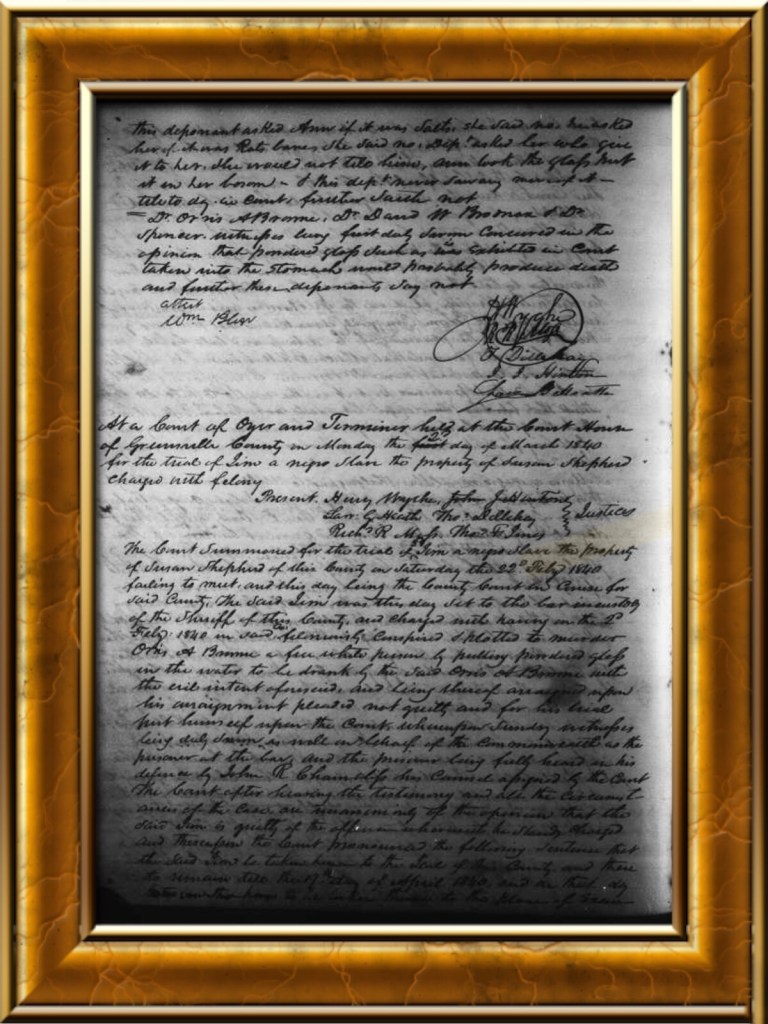 this deponant asked Ann if it was Salts, she said no, he asked
her if it was Rats bane, she said no, Dep.t asked her who give
it to her, she would not tell him, Ann took the glass & put
it in her bosom - & this dep.t never saw any more of it
to day in Court, further saith not
Dr. Orris A Browne, Dr. David W Broman & Dr
Spencer, witnesses being first duly sworn Concured in the
opinion that powdered glass such as was Exhibited in Court
taken into the Stomach would probably produce death
and further these deponants say not
attest
Wm Blyer
H Wyche
I. J. Hinton
At a Court of Oyer and Terminer held at the Court House
of Greensville County on Monday the 2d day of March 1840
for the trial of Jim a negro Slave the property of Susan Shepherd
charged with felony
Present, Henry Wyche, John J Hinton
Law. G. Heath Thos. Dillehay } Justices
Richd. R. Moss, Thos. F. Jones
The Court Summoned for the trial of Jim a negro Slave the property
of Susan Shepherd of this County on Saturday the 22d Feby 1840
failing to meet, and this day being the County Court in Course for
said County, The said Jim was this day set to the bar in custody
of the Sheriff of this County, and charged with having on the 2d
Feby 1840 in said Co. feloniously Conspired & plotted to murder
Orris A Browne a free white person by putting powdered glass
in the water to be drank by the said Orris A Browne with
the evil intent aforesaid, and being thereof arraigned upon
his arraignment pleaded not guilty and for his trial
put himself upon the Court, whereupon Sundry witnesses
being duly sworn as well on behalf of the Commonwealth as the
prisoner at the bar, and the prisoner being fully heard in his
defence by John R Chambliss his Counsel assigned by the Court
The Court after hearing the testimony and all the Circumst-
ances of the Case are unanimously of the opinion that the
said Jim is guilty of the offence wherewith he stands charged
and thereupon the Court pronounced the following Sentence that
the said Jim be taken hence to the Jail of this County, and there
to remain till the 17th day of April 1840, and on that day
to be taken thence to the place of